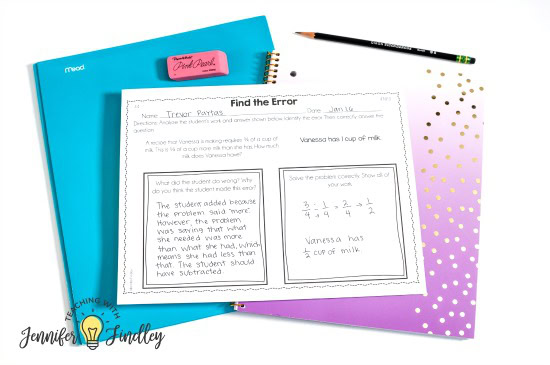 Mead
Pink Pearl
Find the Error
Name: Trevor Partas Date: Jan 16
Directions: Analyze the student's work and answer shown below. Identify the error. Then correctly answer the
question.
A recipe that Vanessa is making requires ¾ of a cup of
milk. This is ¼ of a cup more milk than she has. How much
milk does Vanessa have?
Vanessa has 1 cup of milk.
What did the student do wrong? Why
do you think the student made this error?
The student added because
the problem said "more".
However, the problem
was saying that what
she needed was more
than what she had, which
means she had less than
that. The student should
have subtracted.
Solve the problem correctly. Show all of
your work.
3/4 - 1/4 → 2/4 → 1/2
Vanessa has
1/2 cup of milk
TEACHING WITH
Jennifer Findley